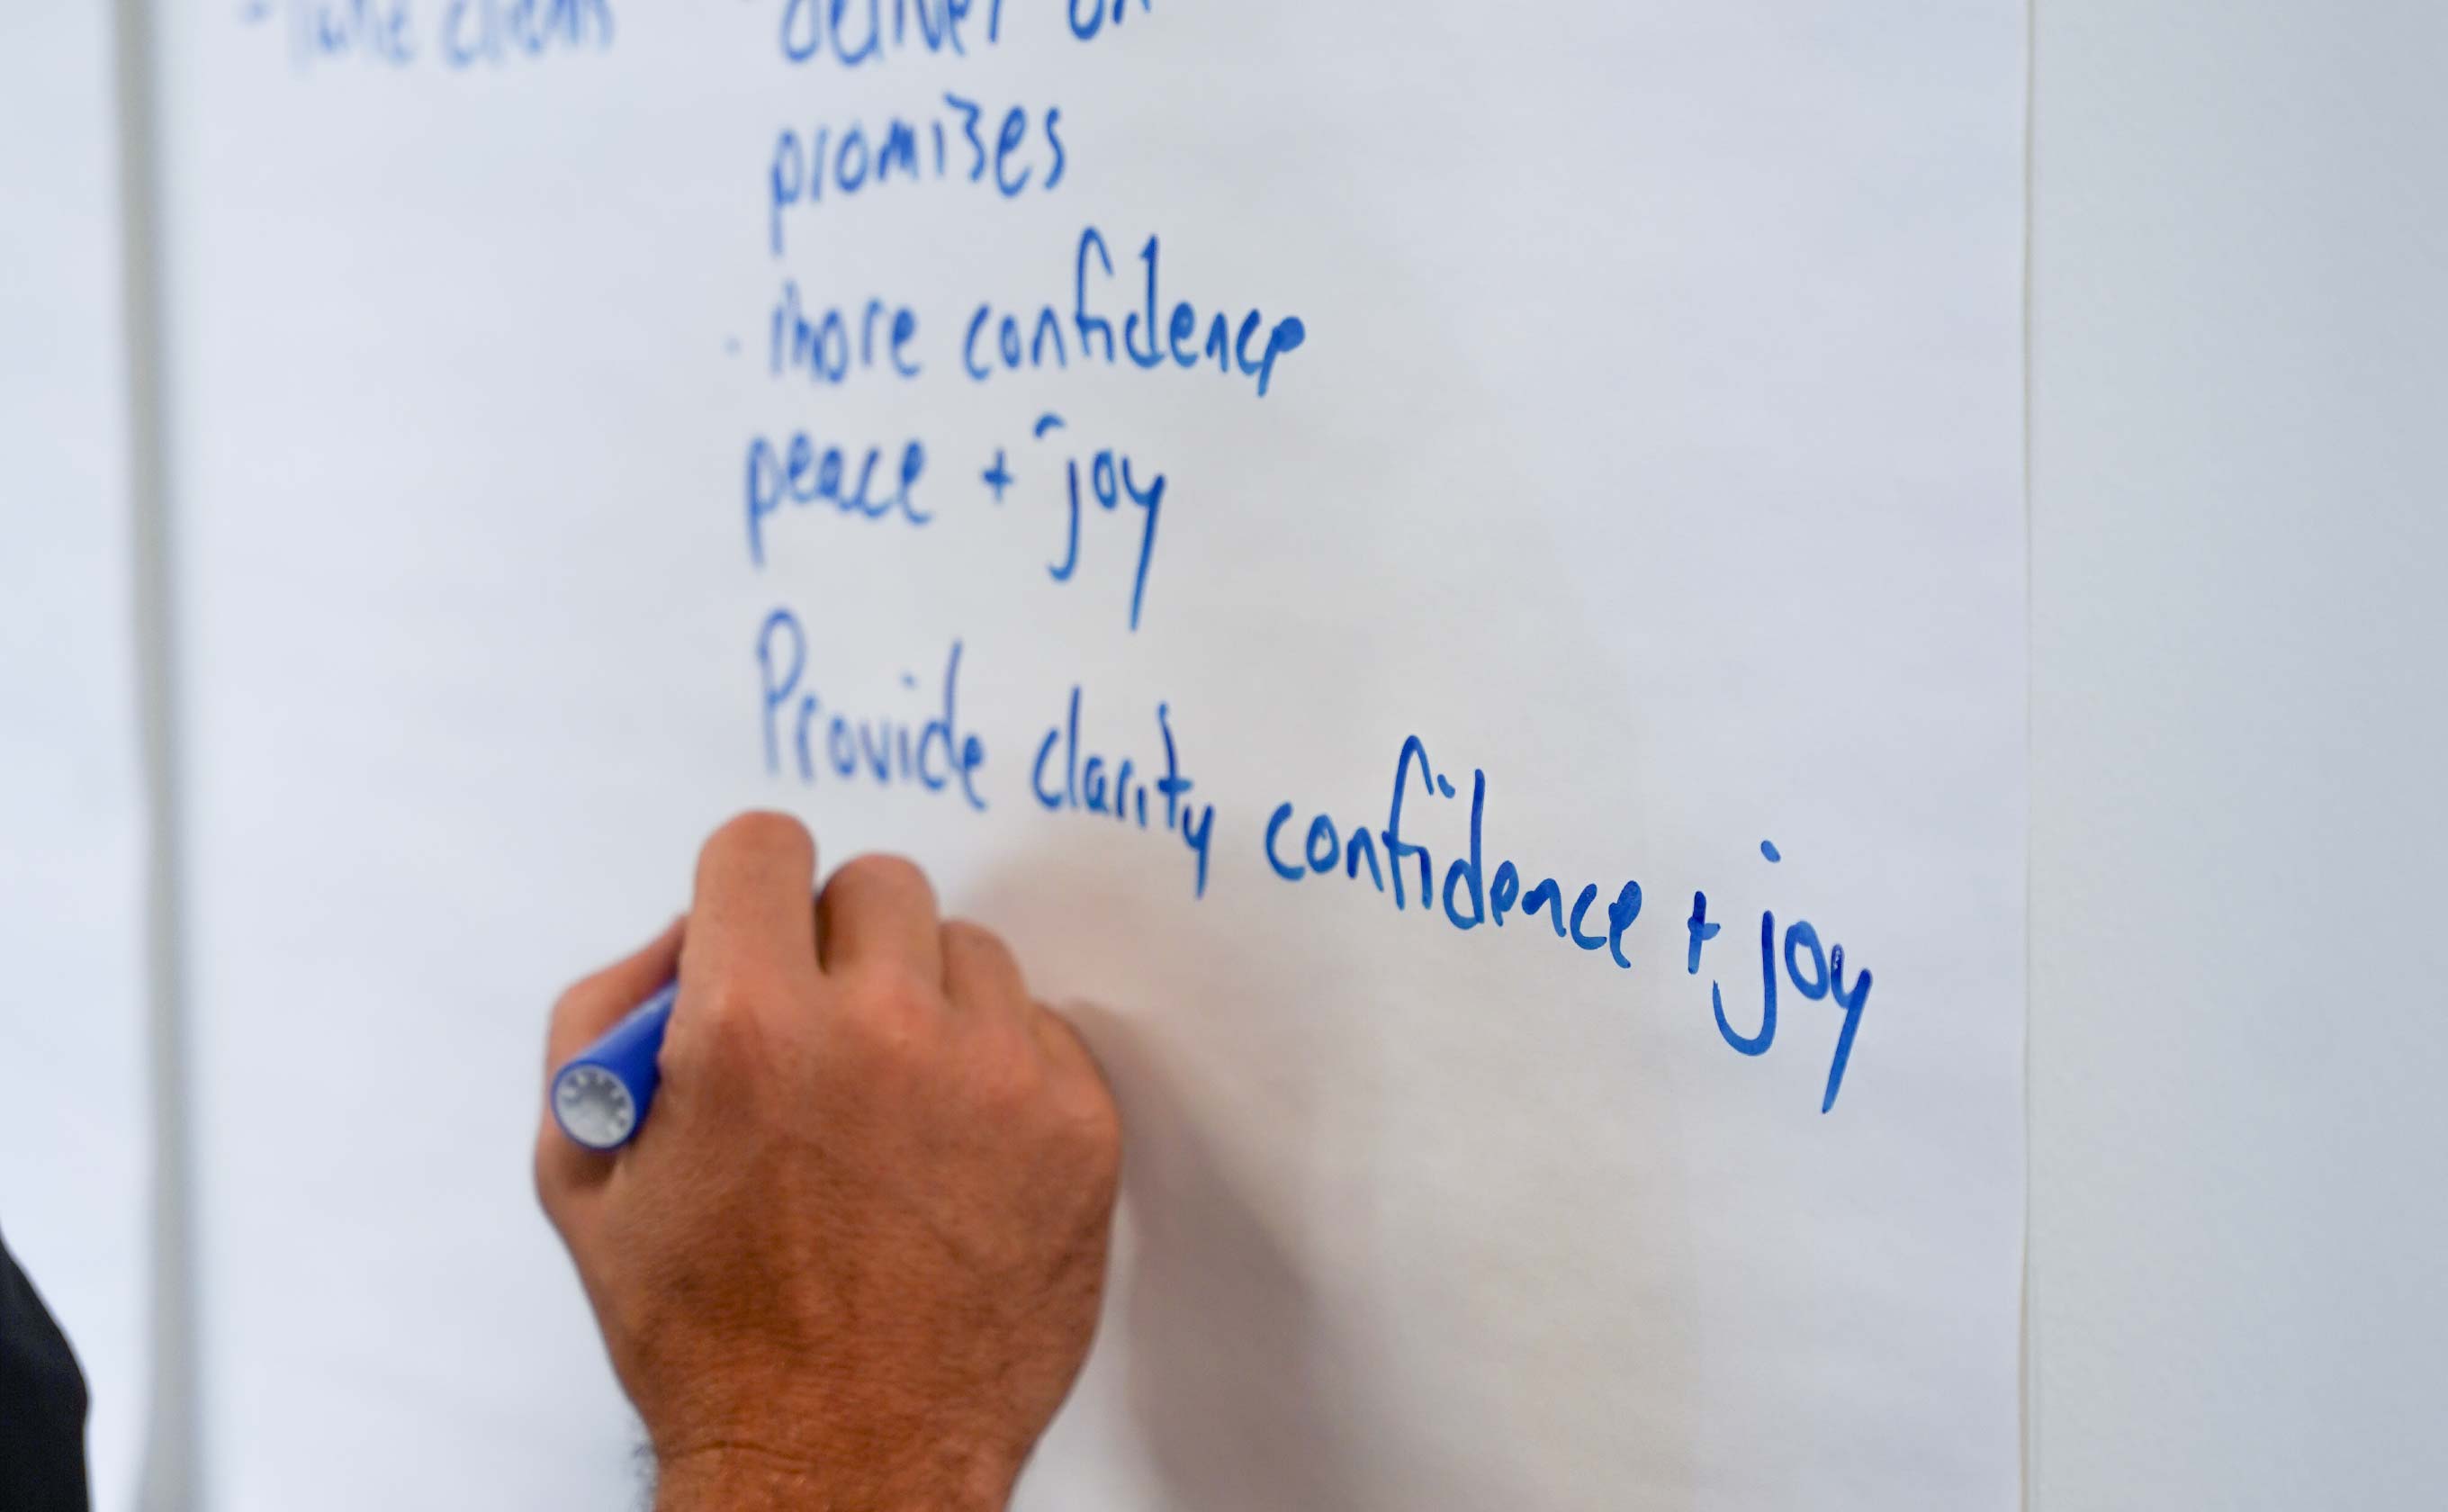 deliver on
promises
· more confidence
peace + joy
Provide clarity confidence + joy